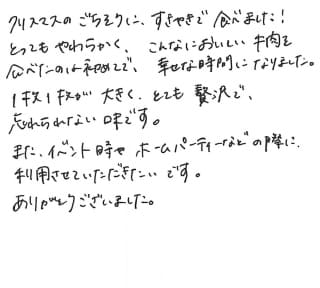 クリスマスのごちそうに、すきやきで食べました!
とってもやわらかく、こんなにおいしい牛肉を
食べたのは初めてで、幸せな時間になりました。
1枚1枚が大きく、とても贅沢で、
忘れられない味です。
また、イベント時やホームパーティーなどの際に、
利用させていただきたいです。
ありがとうございました。